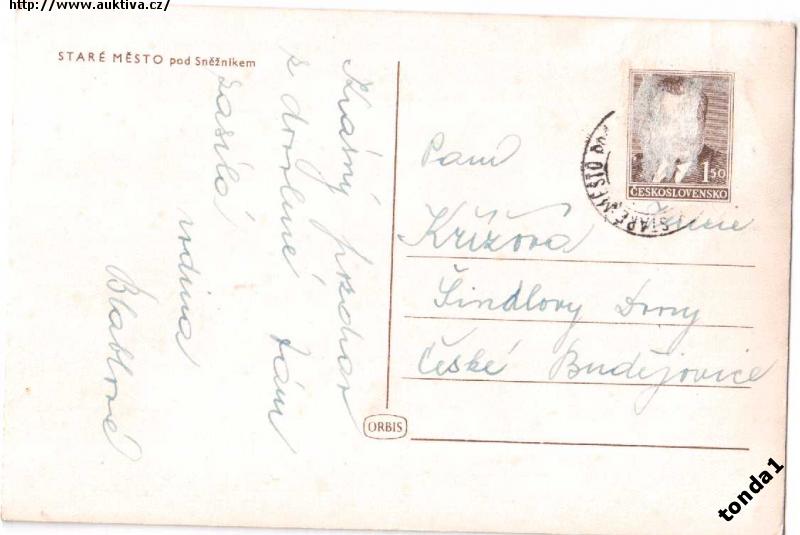 http://www.auktiva.cz/
STARÉ MĚSTO pod Sněžníkem
Krásný pozdrav
z dovolené Vám
zasílá
rodina
1 50
ČESKOSLOVENSKO
STARÉ MĚSTO POD
Paní
Křížová
Šindlovy Dvory
České Budějovice
ORBIS
tonda1